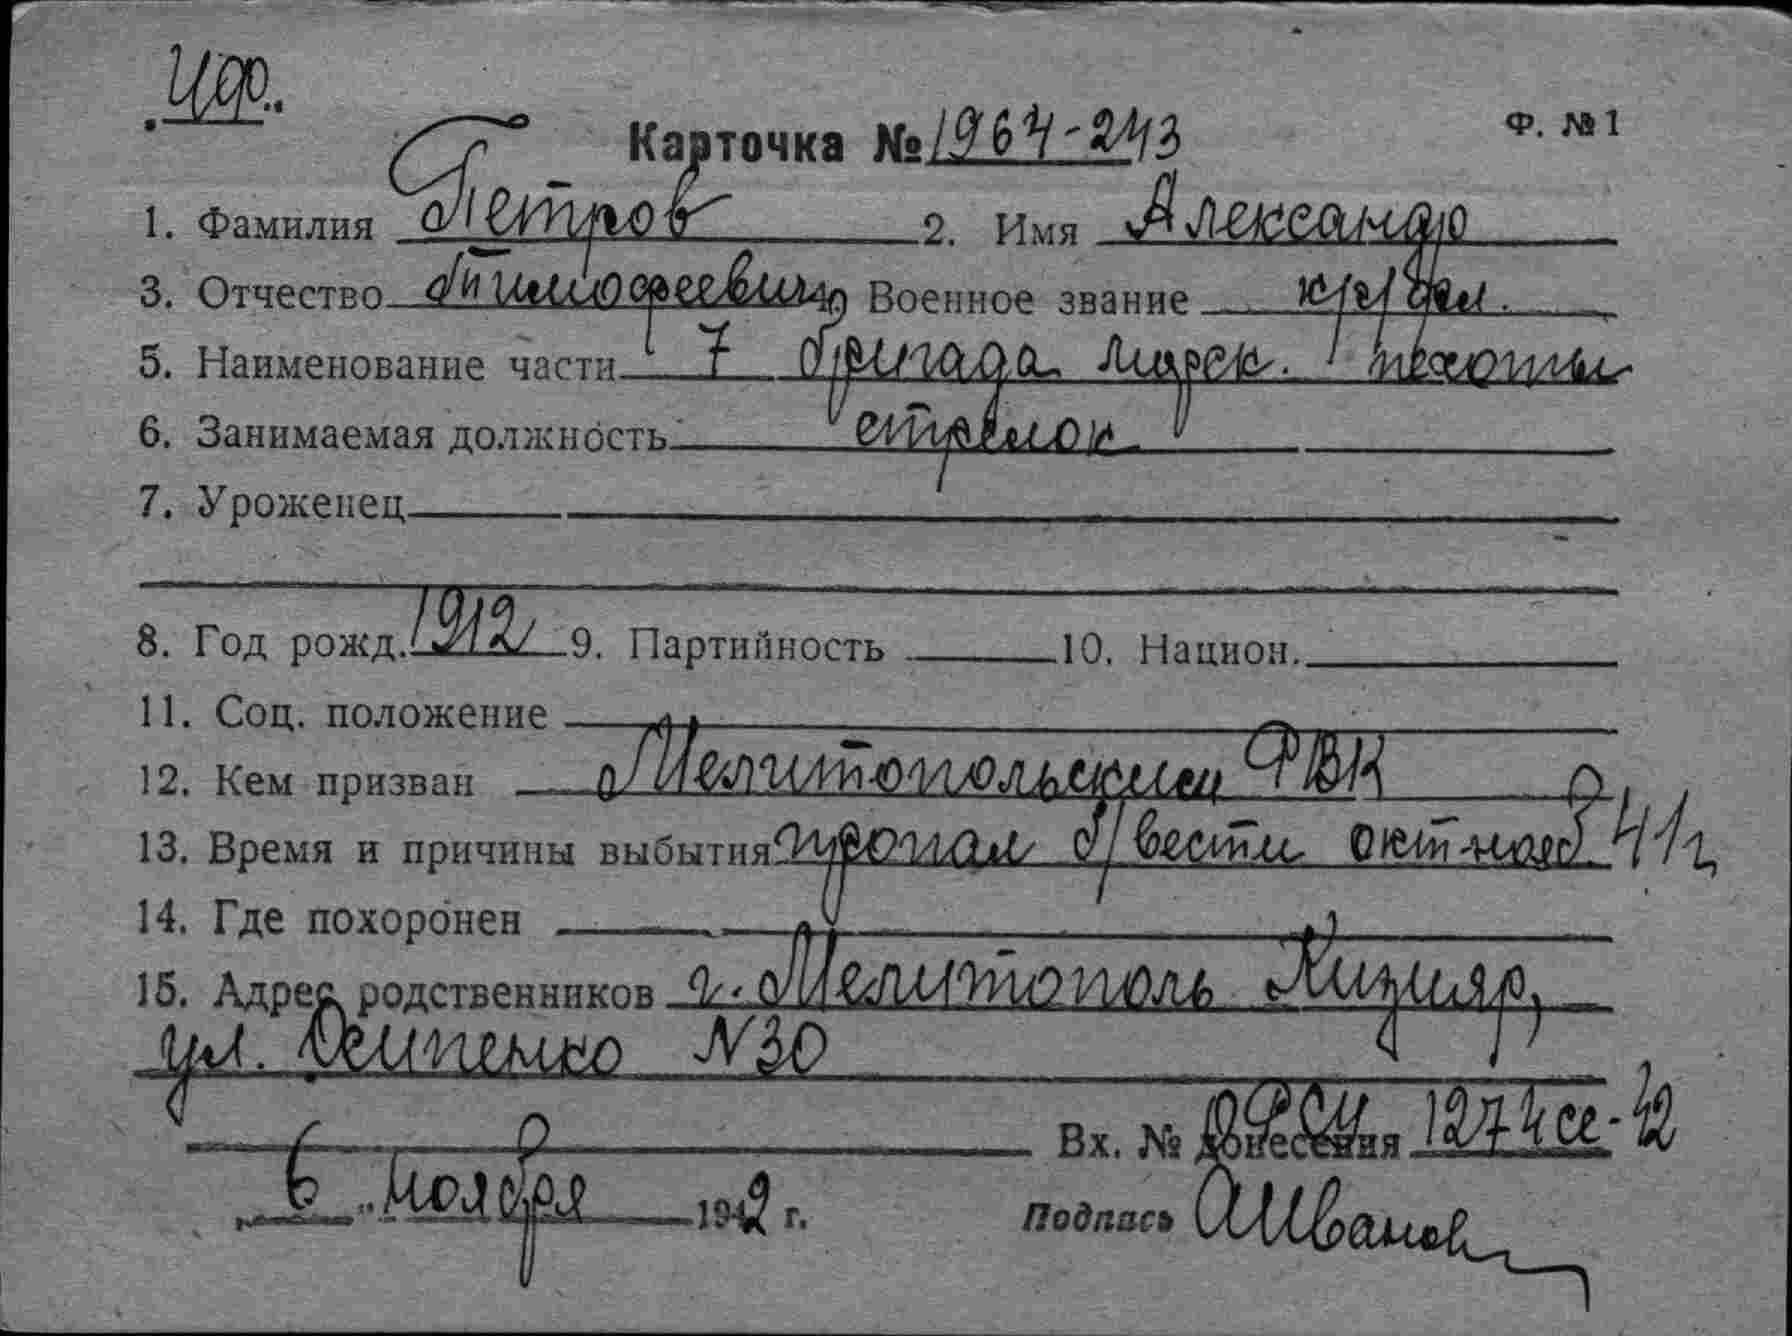 Карточка № 1964-243 Ф. №1
1. Фамилия Петров 2. Имя Александр
3. Отчество Тимофеевич Военное звание
5. Наименование части 7 бригада морск. пехоты
6. Занимаемая должность стрелок
7. Уроженец
8. Год рожд. 1912 9. Партийность 10. Национ.
11. Соц. положение
12. Кем призван Мелитопольским РВК
13. Время и причины выбытия пропал б/вести окт-нояб. 41г.
14. Где похоронен
15. Адрес родственников г. Мелитополь Кизияр,
ул. Осипенко N 30
Вх. № донесения 1274сс-42
6 ноября 1942 г. Подпись АИванов